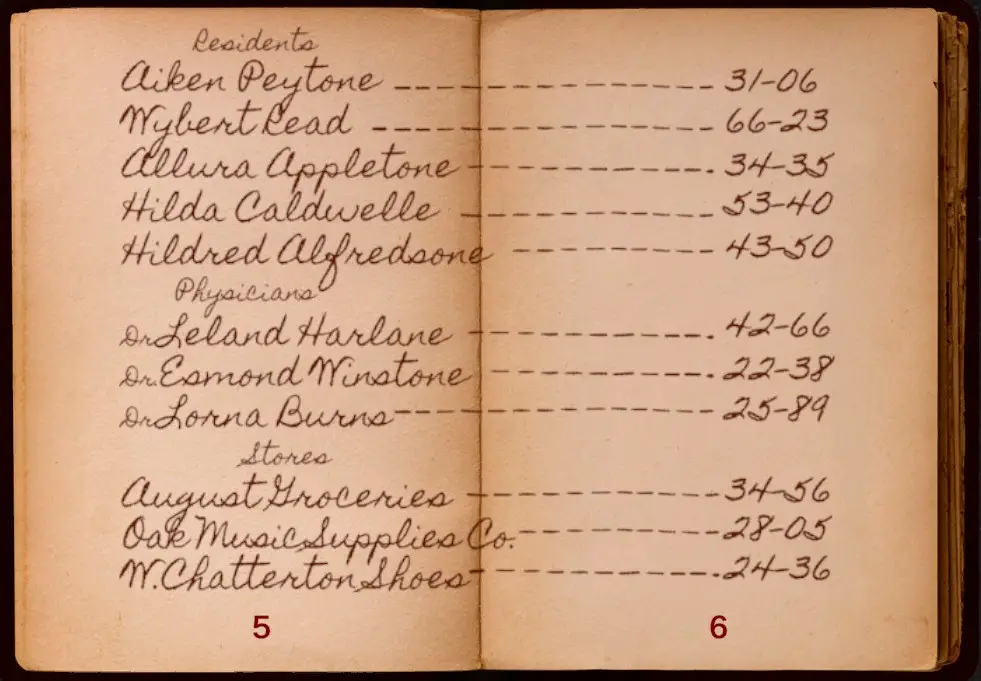 Residents
Aiken Peytone ------------------ 31-06
Wybert Read ------------------ 66-23
Allura Appletone -------------- 34-35
Hilda Caldwelle -------------- 53-40
Hildred Alfredsone ----------- 43-50
Physicians
Dr Leland Harlane ------------- 42-66
Dr. Esmond Winstone ------------ 22-38
Dr Lorna Burns ----------------- 25-89
Stores
August Groceries -------------- 34-56
Oak Music Supplies Co. ----------- 28-05
W. Chatterton Shoes -------------- 24-36
5 6